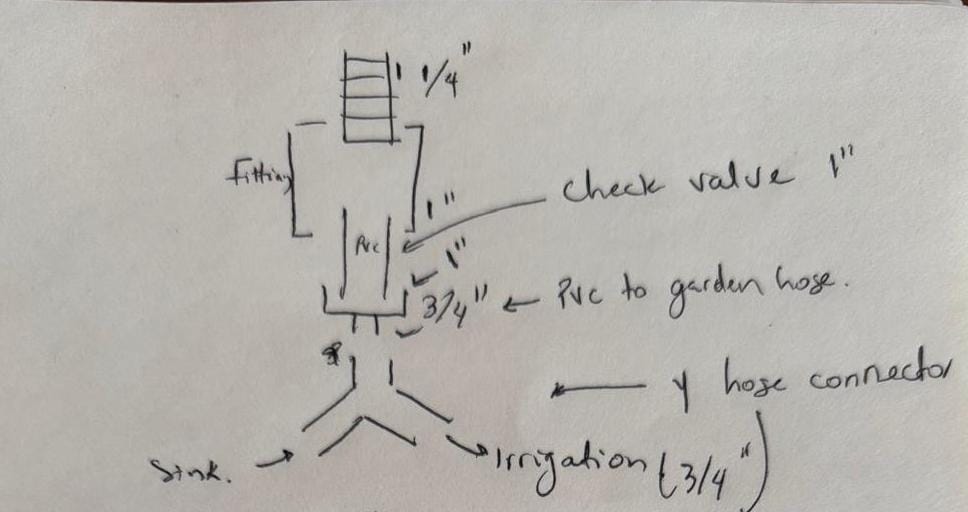 1 1/4"
fitting
check valve 1"
1"
Pvc
1"
3/4" ← Pvc to garden hose.
y hose connector
Sink.
Irrigation (3/4")